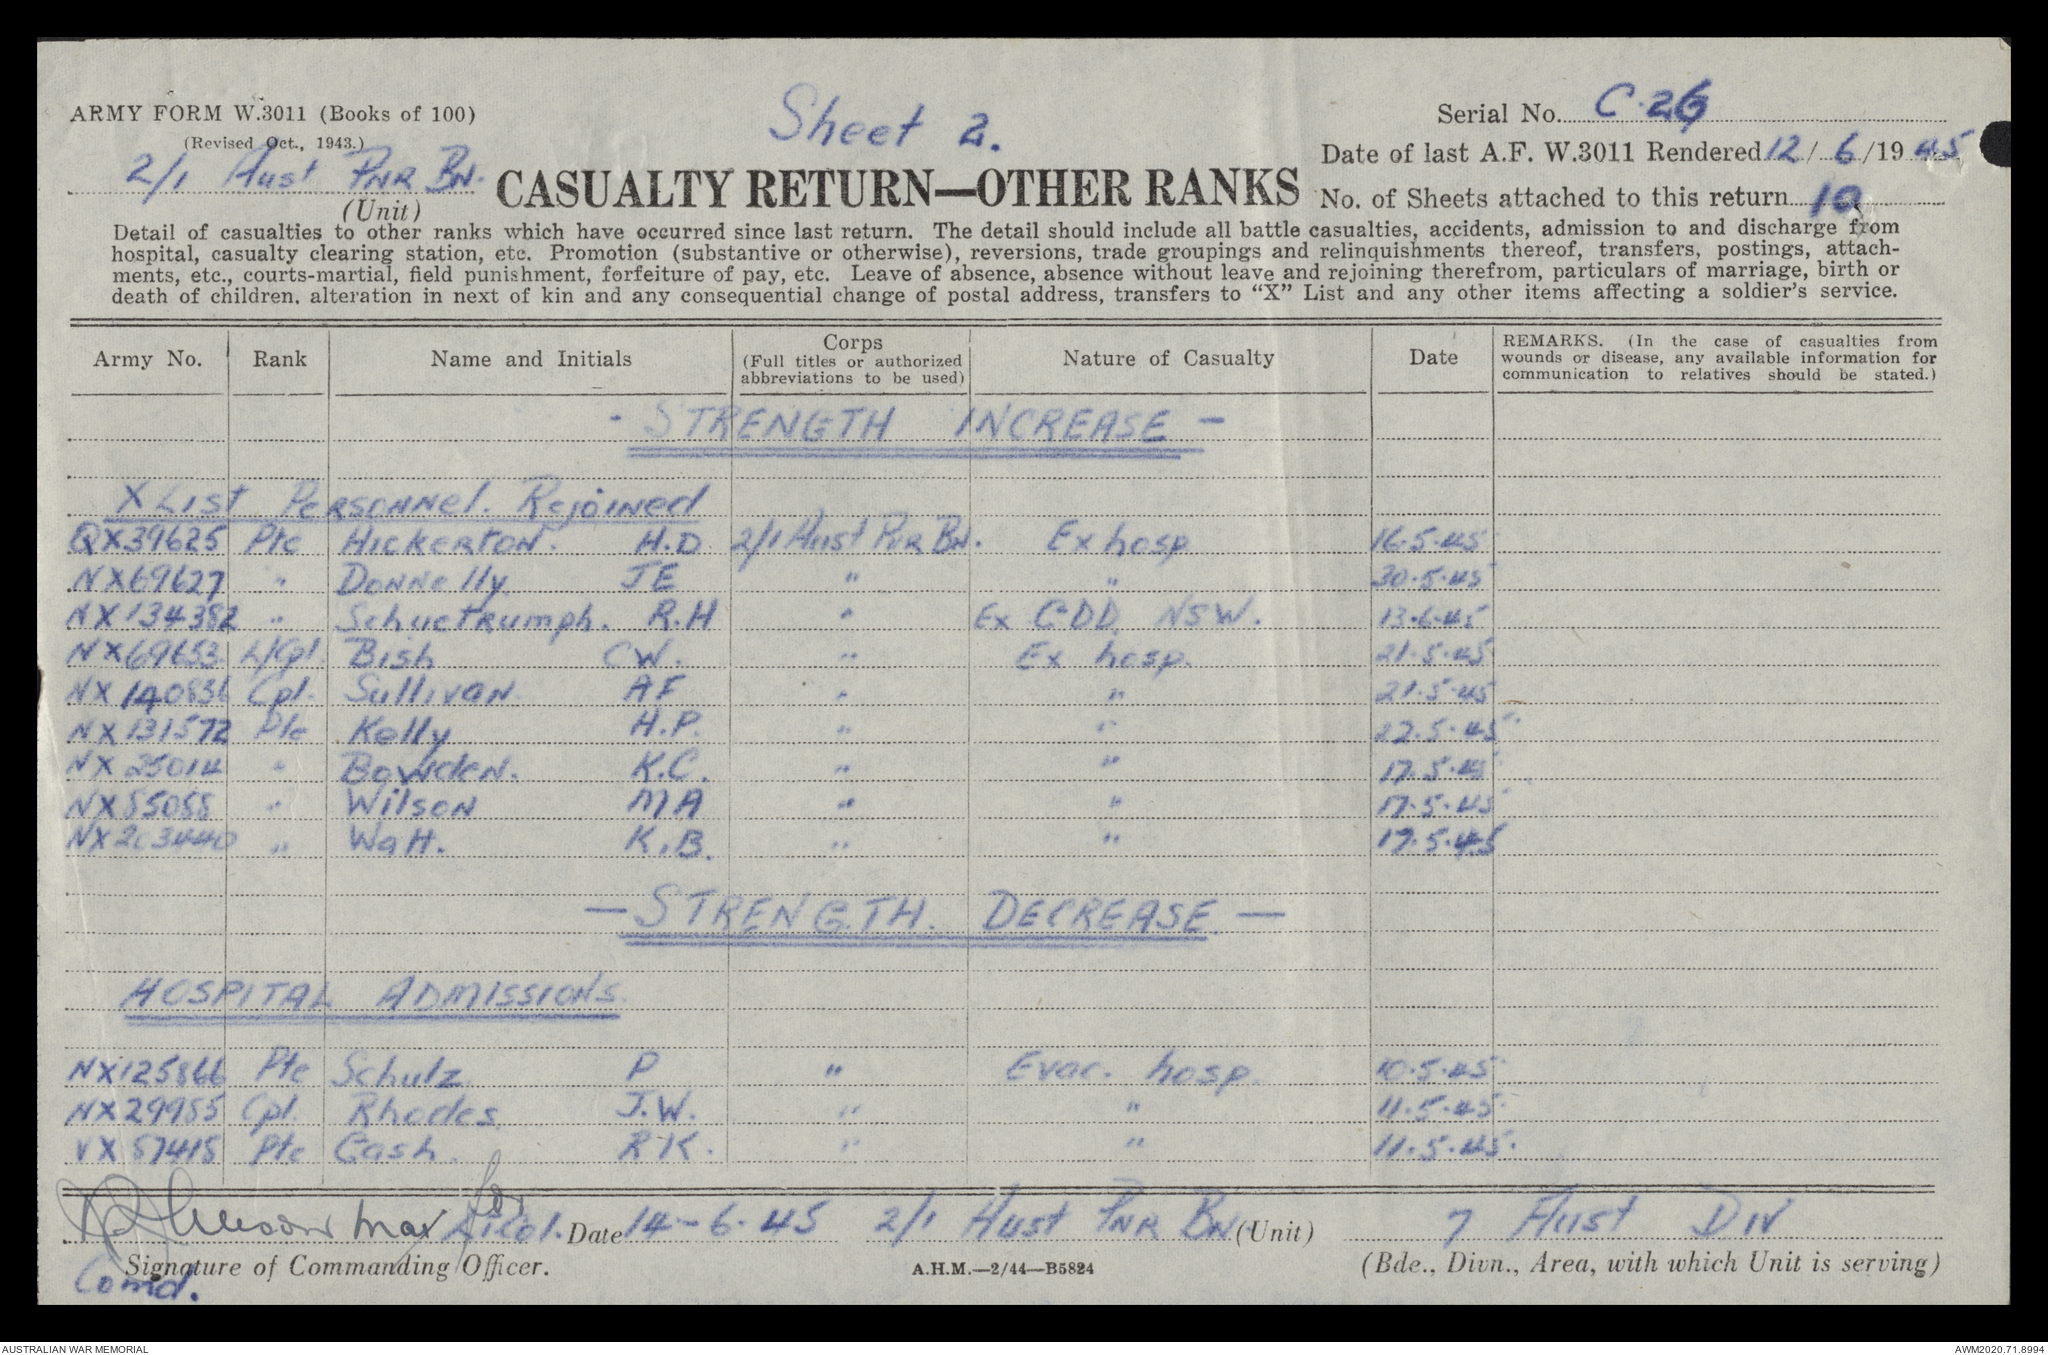 ARMY FORM W.3011 (Books of 100)
(Revised Oct., 1943.)
Sheet 2.
Serial No. C.26
Date of last A.F. W.3011 Rendered 12/ 6 /19 45
2/1 Aust PNR BN.
(Unit)
CASUALTY RETURN—OTHER RANKS
No. of Sheets attached to this return 10
Detail of casualties to other ranks which have occurred since last return. The detail should include all battle casualties, accidents, admission to and discharge from
hospital, casualty clearing station, etc. Promotion (substantive or otherwise), reversions, trade groupings and relinquishments thereof, transfers, postings, attach-
ments, etc., courts-martial, field punishment, forfeiture of pay, etc. Leave of absence, absence without leave and rejoining therefrom, particulars of marriage, birth or
death of children. alteration in next of kin and any consequential change of postal address, transfers to "X" List and any other items affecting a soldier's service.
Army No. Rank Name and Initials Corps (Full titles or authorized abbreviations to be used) Nature of Casualty Date REMARKS. (In the case of casualties from wounds or disease, any available information for communication to relatives should be stated.)
- STRENGTH INCREASE -
X LIST PERSONNEL. REJOINED
QX39625 Pte HICKERTON. H.D 2/1 Aust PNR BN. Ex hosp 16.5.45
NX69627 " DONNELLY. JE " " 30.5.45
NX134382 " Schuetrumph. R.H " Ex GDD NSW. 13.6.45
NX69653 L/Cpl. Bish CW. " Ex hosp. 21.5.45
NX140836 Cpl. Sullivan. AF " " 21.5.45
NX131572 Pte Kelly H.P. " " 22.5.45
NX25014 " Bowden. K.C. " " 17.5.45
NX85058 " Wilson MA " " 17.5.45
NX203440 " Watt. K.B. " " 17.5.45
— STRENGTH. DECREASE. —
HOSPITAL ADMISSIONS.
NX125866 Pte Schulz P " Evac. hosp. 10.5.45
NX29985 Cpl. Rhodes J.W. " " 11.5.45
VX57415 Pte Cash. R.K. " " 11.5.45.
Maj for Lt.Col. Date 14-6-45 2/1 Aust PNR BN (Unit) 7 Aust Div
Signature of Commanding Officer. A.H.M.—2/44—B5824 (Bde., Divn., Area, with which Unit is serving)
Comd.
AUSTRALIAN WAR MEMORIAL AWM2020.71.8994